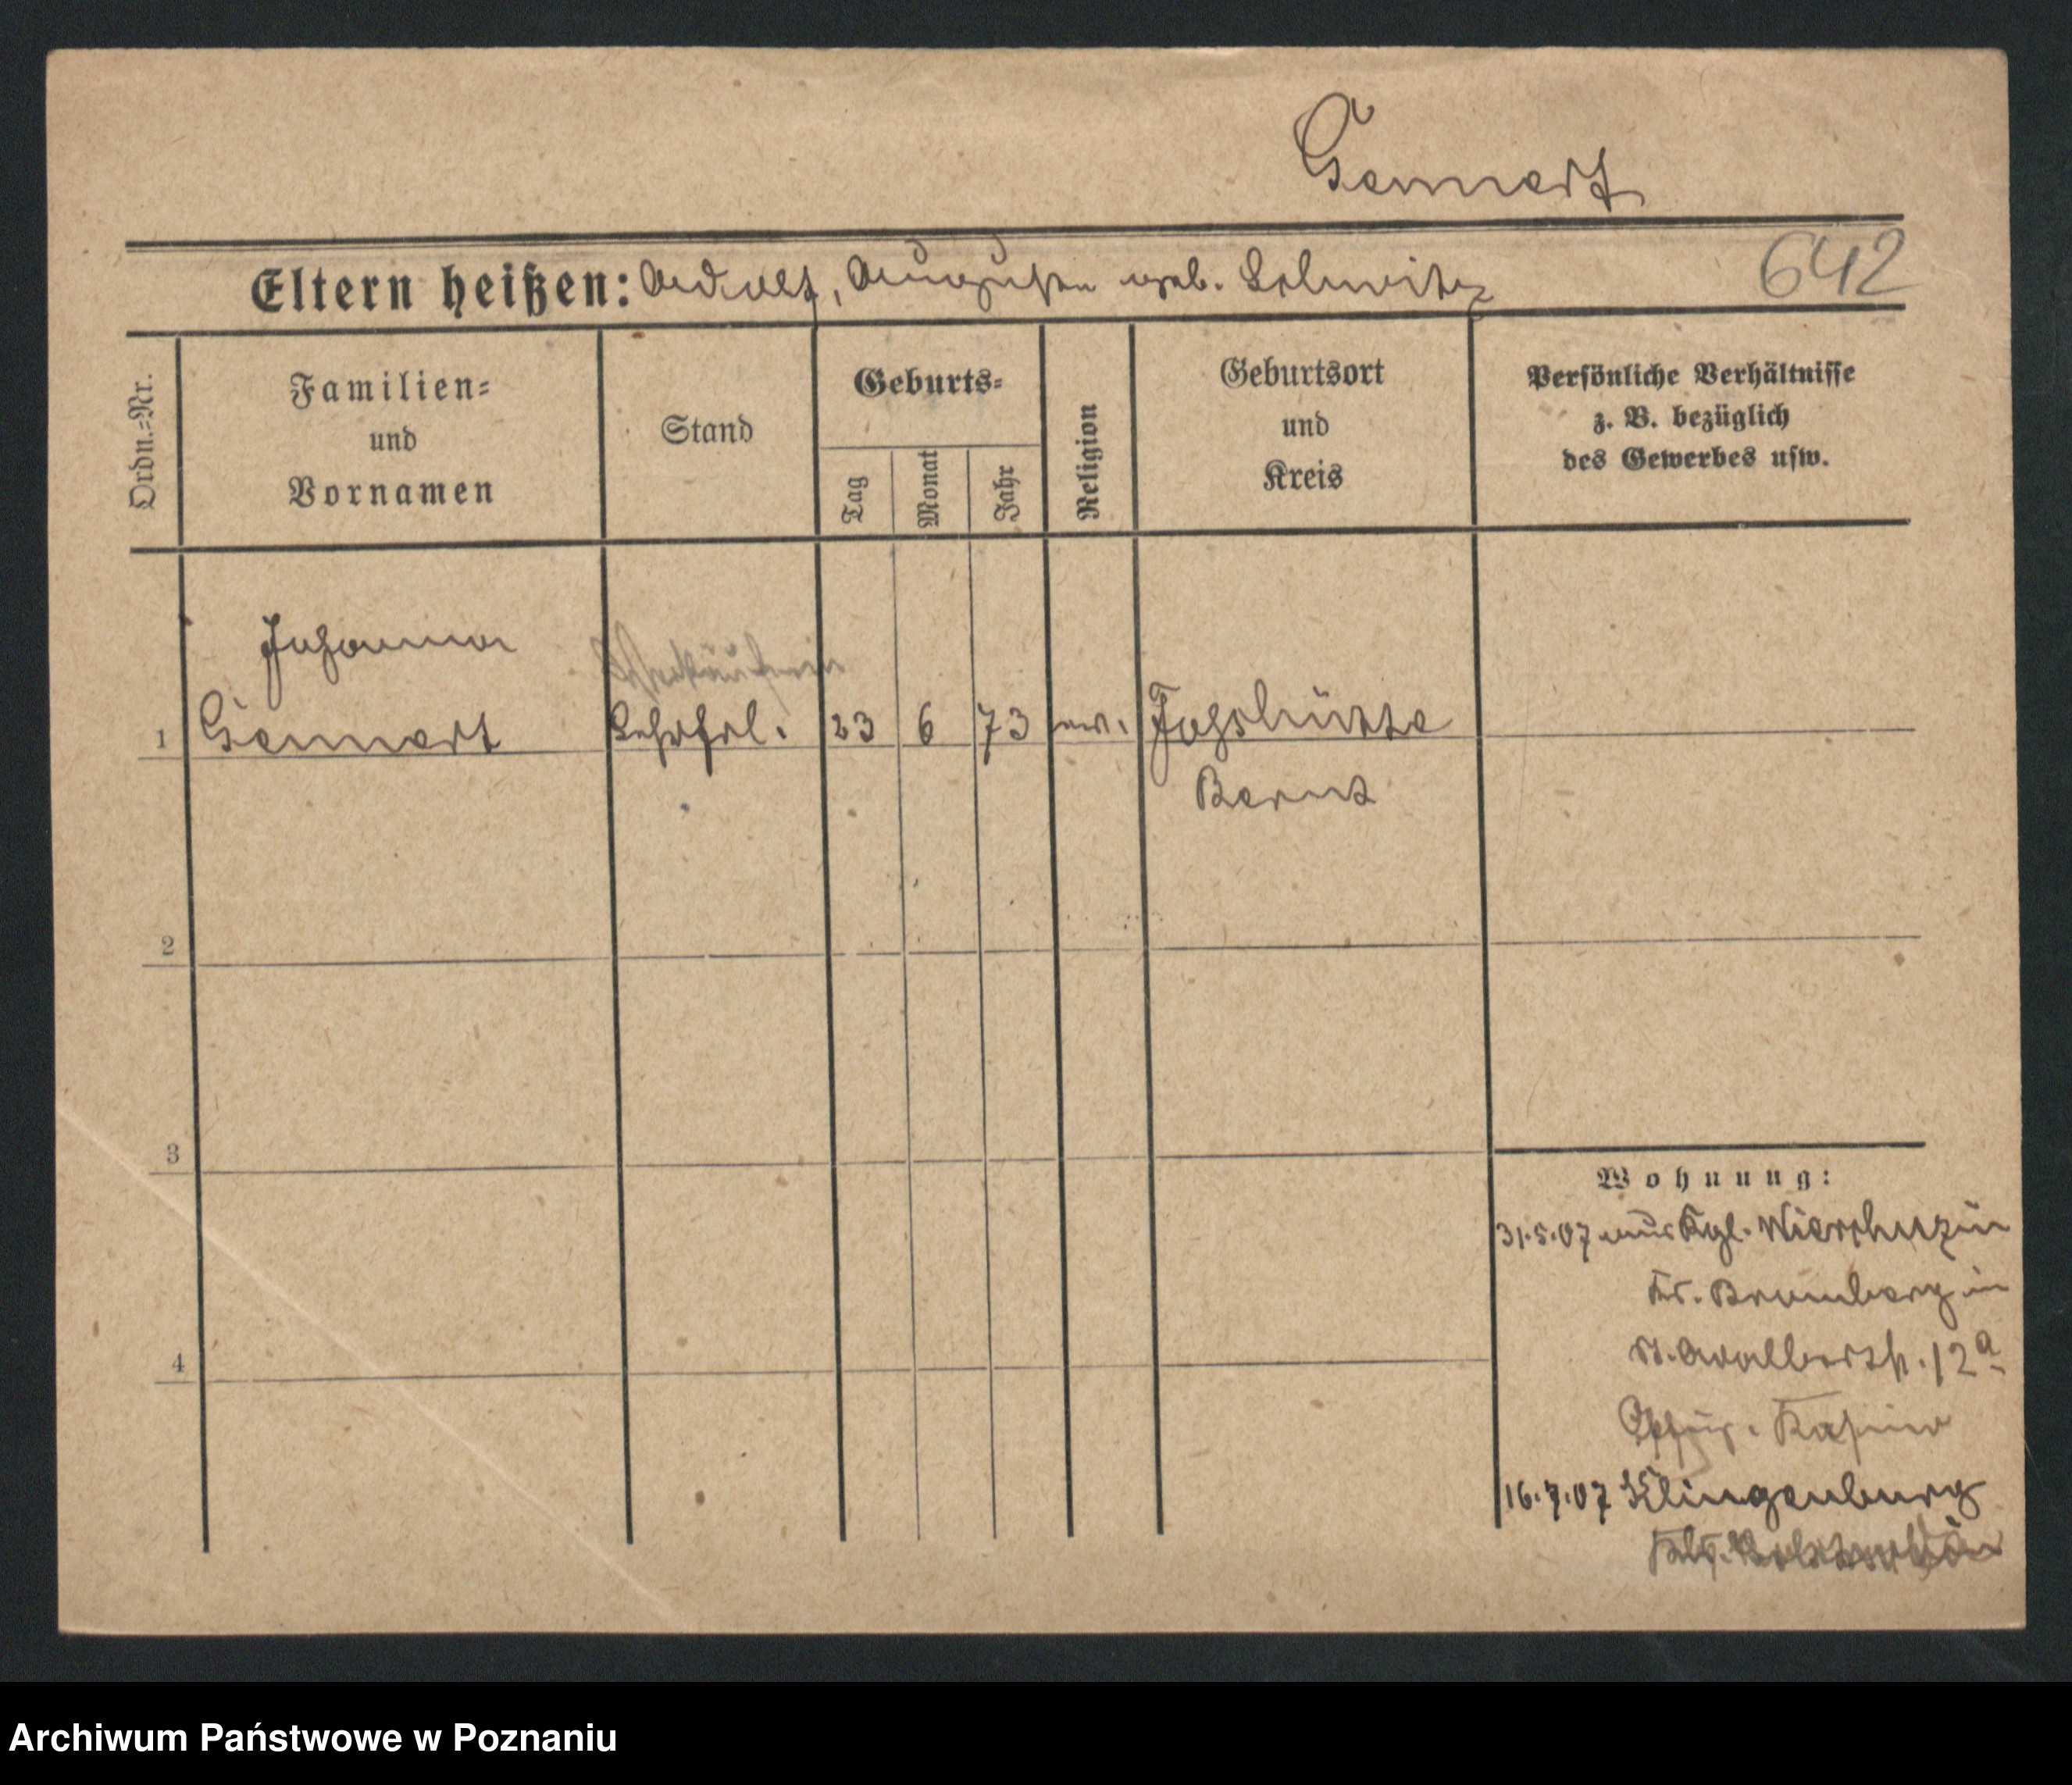 Gennert
642
Eltern heißen: Adolf, Auguste geb. Schmitz
Ordn.=Nr.
Familien=
und
Vornamen
Stand
Geburts=
Tag
Monat
Jahr
Religion
Geburtsort
und
Kreis
Persönliche Verhältnisse
z. B. bezüglich
des Gewerbes usw.
Johanna
1 Gennert
23 6 73 ev.
2
3
Wohnung:
31.5.07 aus Kgl.
Kr. Bromberg in
St. Adalbertstr. 12a
4
Kasino
16.7.07 Klingenburg
Archiwum Państwowe w Poznaniu